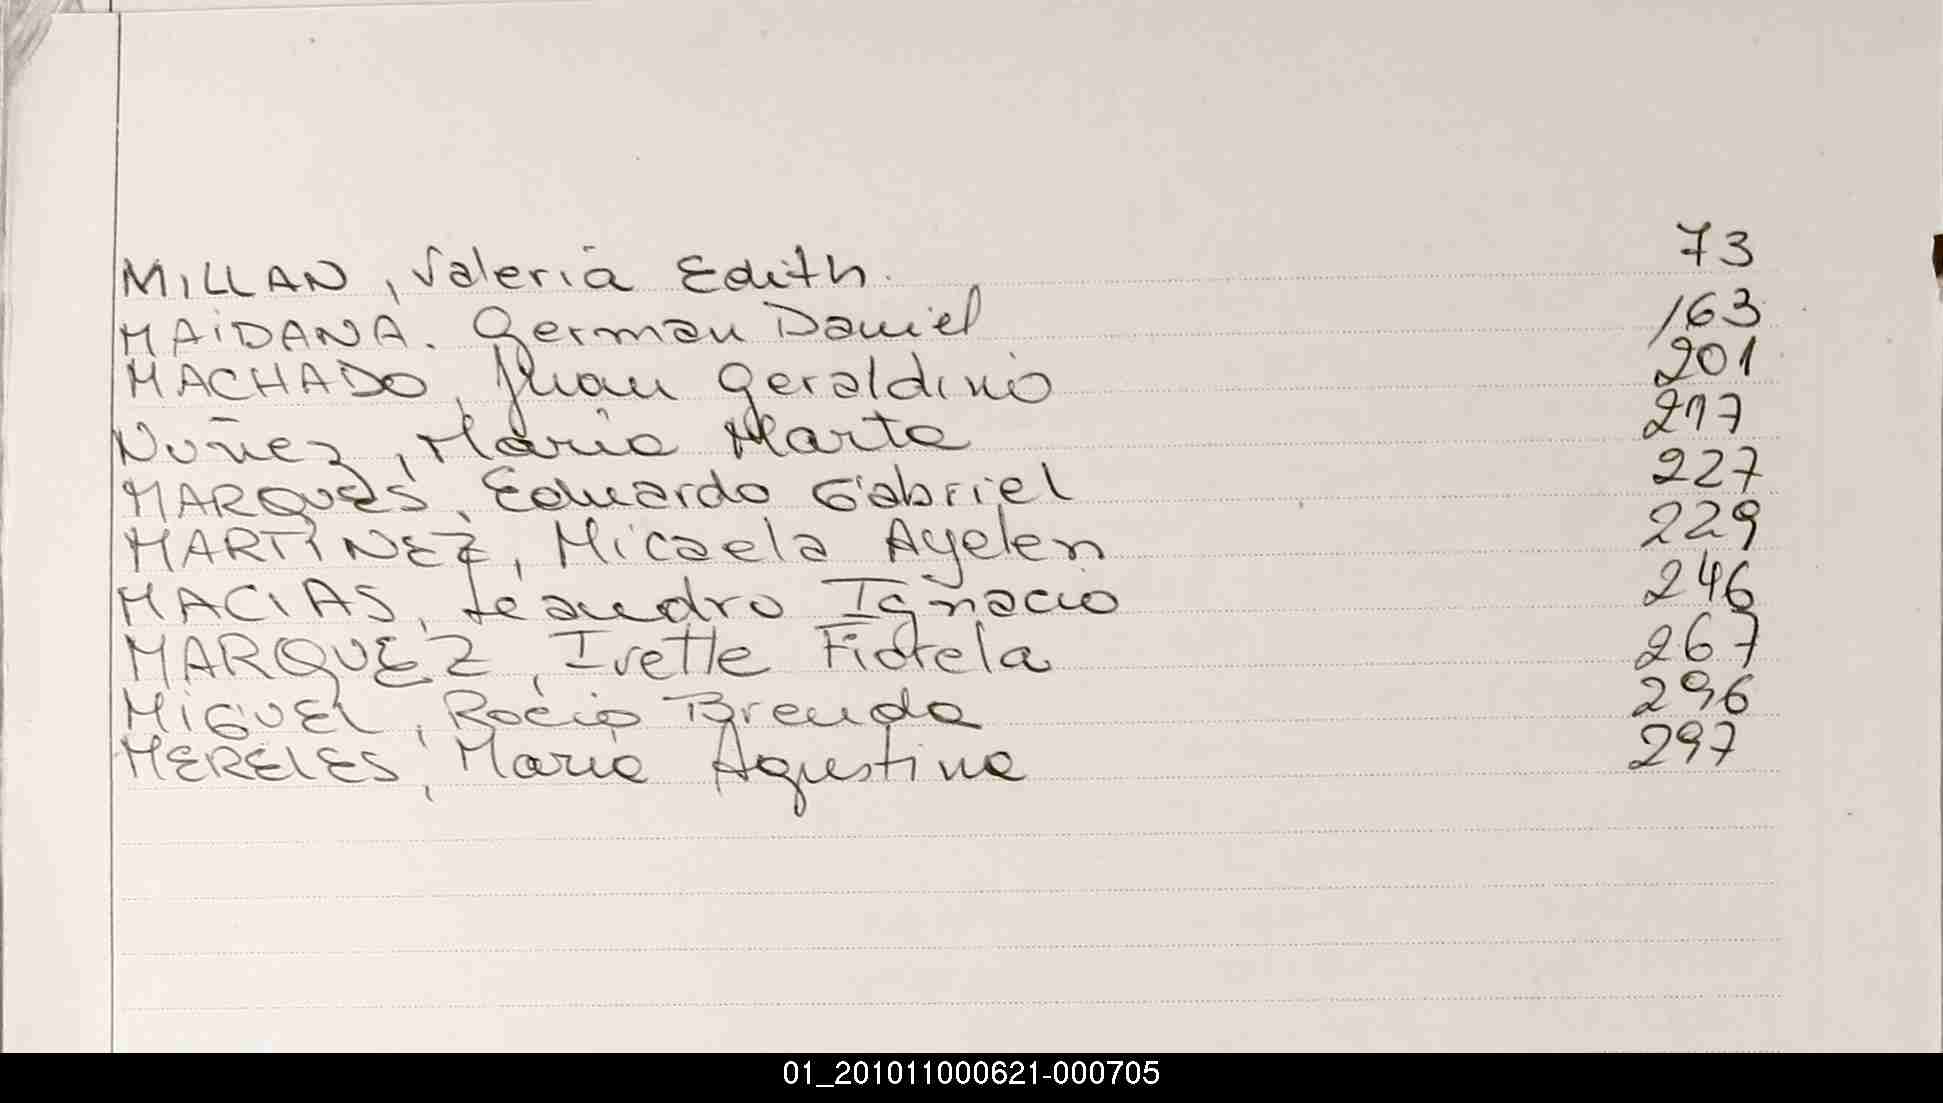 MILLAN, Valeria Edith. 73
MAIDANA. German Daniel 163
MACHADO, Jhoan Geraldino 201
Nuñez, Maria Marta 217
MARQUES, Eduardo Gabriel 227
MARTINEZ, Micaela Ayelen 229
MACIAS, Leandro Ignacio 246
MARQUEZ, Ivette Fiorela 267
MIGUEL, Rocio Brenda 296
MERELES, Maria Agustina 297
01_201011000621-000705